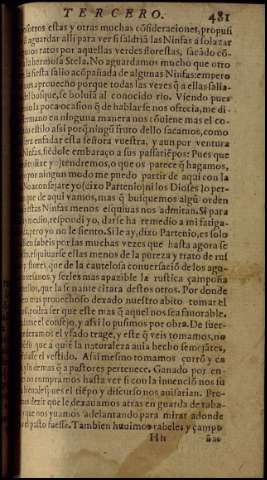 TERCERO. 481
otros estas y otras muchas cõsideraciones, propusi
aguardar alli para ver si saldriã las Ninfas a solazar
unos ratos por aquellas verdes florestas, sacãdo cõ
la hermosa Stela. No aguardamos mucho que otro
la siesta salio acõpañada de algunas Ninfas: empero
un aprouecho porque todas las vezes q̃ a ellas salia
del bosque, se boluiã al conocido rio. Viendo pues
la poca ocasion q̃ de hablarse nos ofrecia, me di
hermano en ninguna manera nos cõuiene mas el co
estilo assi porq̃ ningũ fruto dello sacamos, como
enfadar esta señora vuestra, y aun por ventura
Ninfas, siẽdole embaraço a sus passatiẽpos: Pues que
tendremos, o que os parece q̃ hagamos,
por ningun modo me puedo partir de aqui con la
No aconsejare yo (dixo Partenio) ni los Dioses lo per
que de aqui vamos, mas q̃ busquemos algũ orden
estas Ninfas menos esquiuas nos admitan. Si para
medio, respondi yo, darse ha remedio a mi fatiga
pero yo no le siento. Si le ay, dixo Partenio, es solo
sabeis por las muchas vezes que hasta agora se
esquiuarse ellas menos de la pureza y trato de rus
flores, que de la cautelosa conuersaciõ de los
y serles mas apazible la rustica çampoña
que la sonante citara destos otros. Por donde
prouechoso dexado nuestro abito tomar el
podra ser que este mas q̃ aquel nos sea fauorable.
el consejo, y assi lo pusimos por obra. De fuer
el vsado trage, y este q̃ veis tomamos, no
que a quiẽ la naturaleza auia hecho semejãtes,
el vestido. Assi mesmo tomamos çurrõ y ca
demas q̃ a pastores pertenece. Ganado por en
compramos hasta ver si con la inuenciõ nos su
pues el tiẽpo y discurso nos auisarian. Pro
dezir que le dexauamos atras en guarda de raba
que nos yuamos adelantando para mirar adonde
pasto fuesse. Tambien huuimos rabeles y çampo
Hh ñas